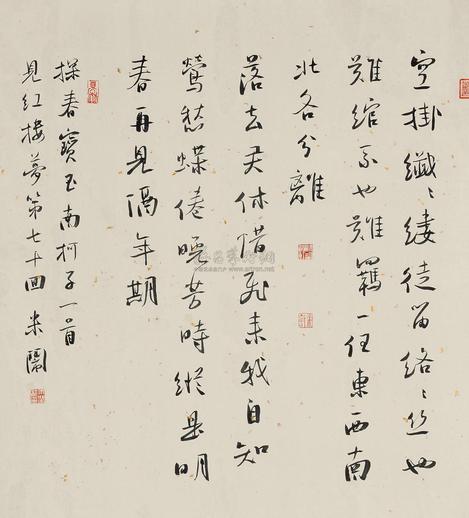 空掛纖〻縷徒留絡〻丝也
難綰系也難羈一任東西南
北各分離
落去君休惜飛来我自知
鶯愁蝶倦晚芳時縱是明
春再見隔年期
探春寶玉南柯子一首
見紅樓夢第七十回 米鬧